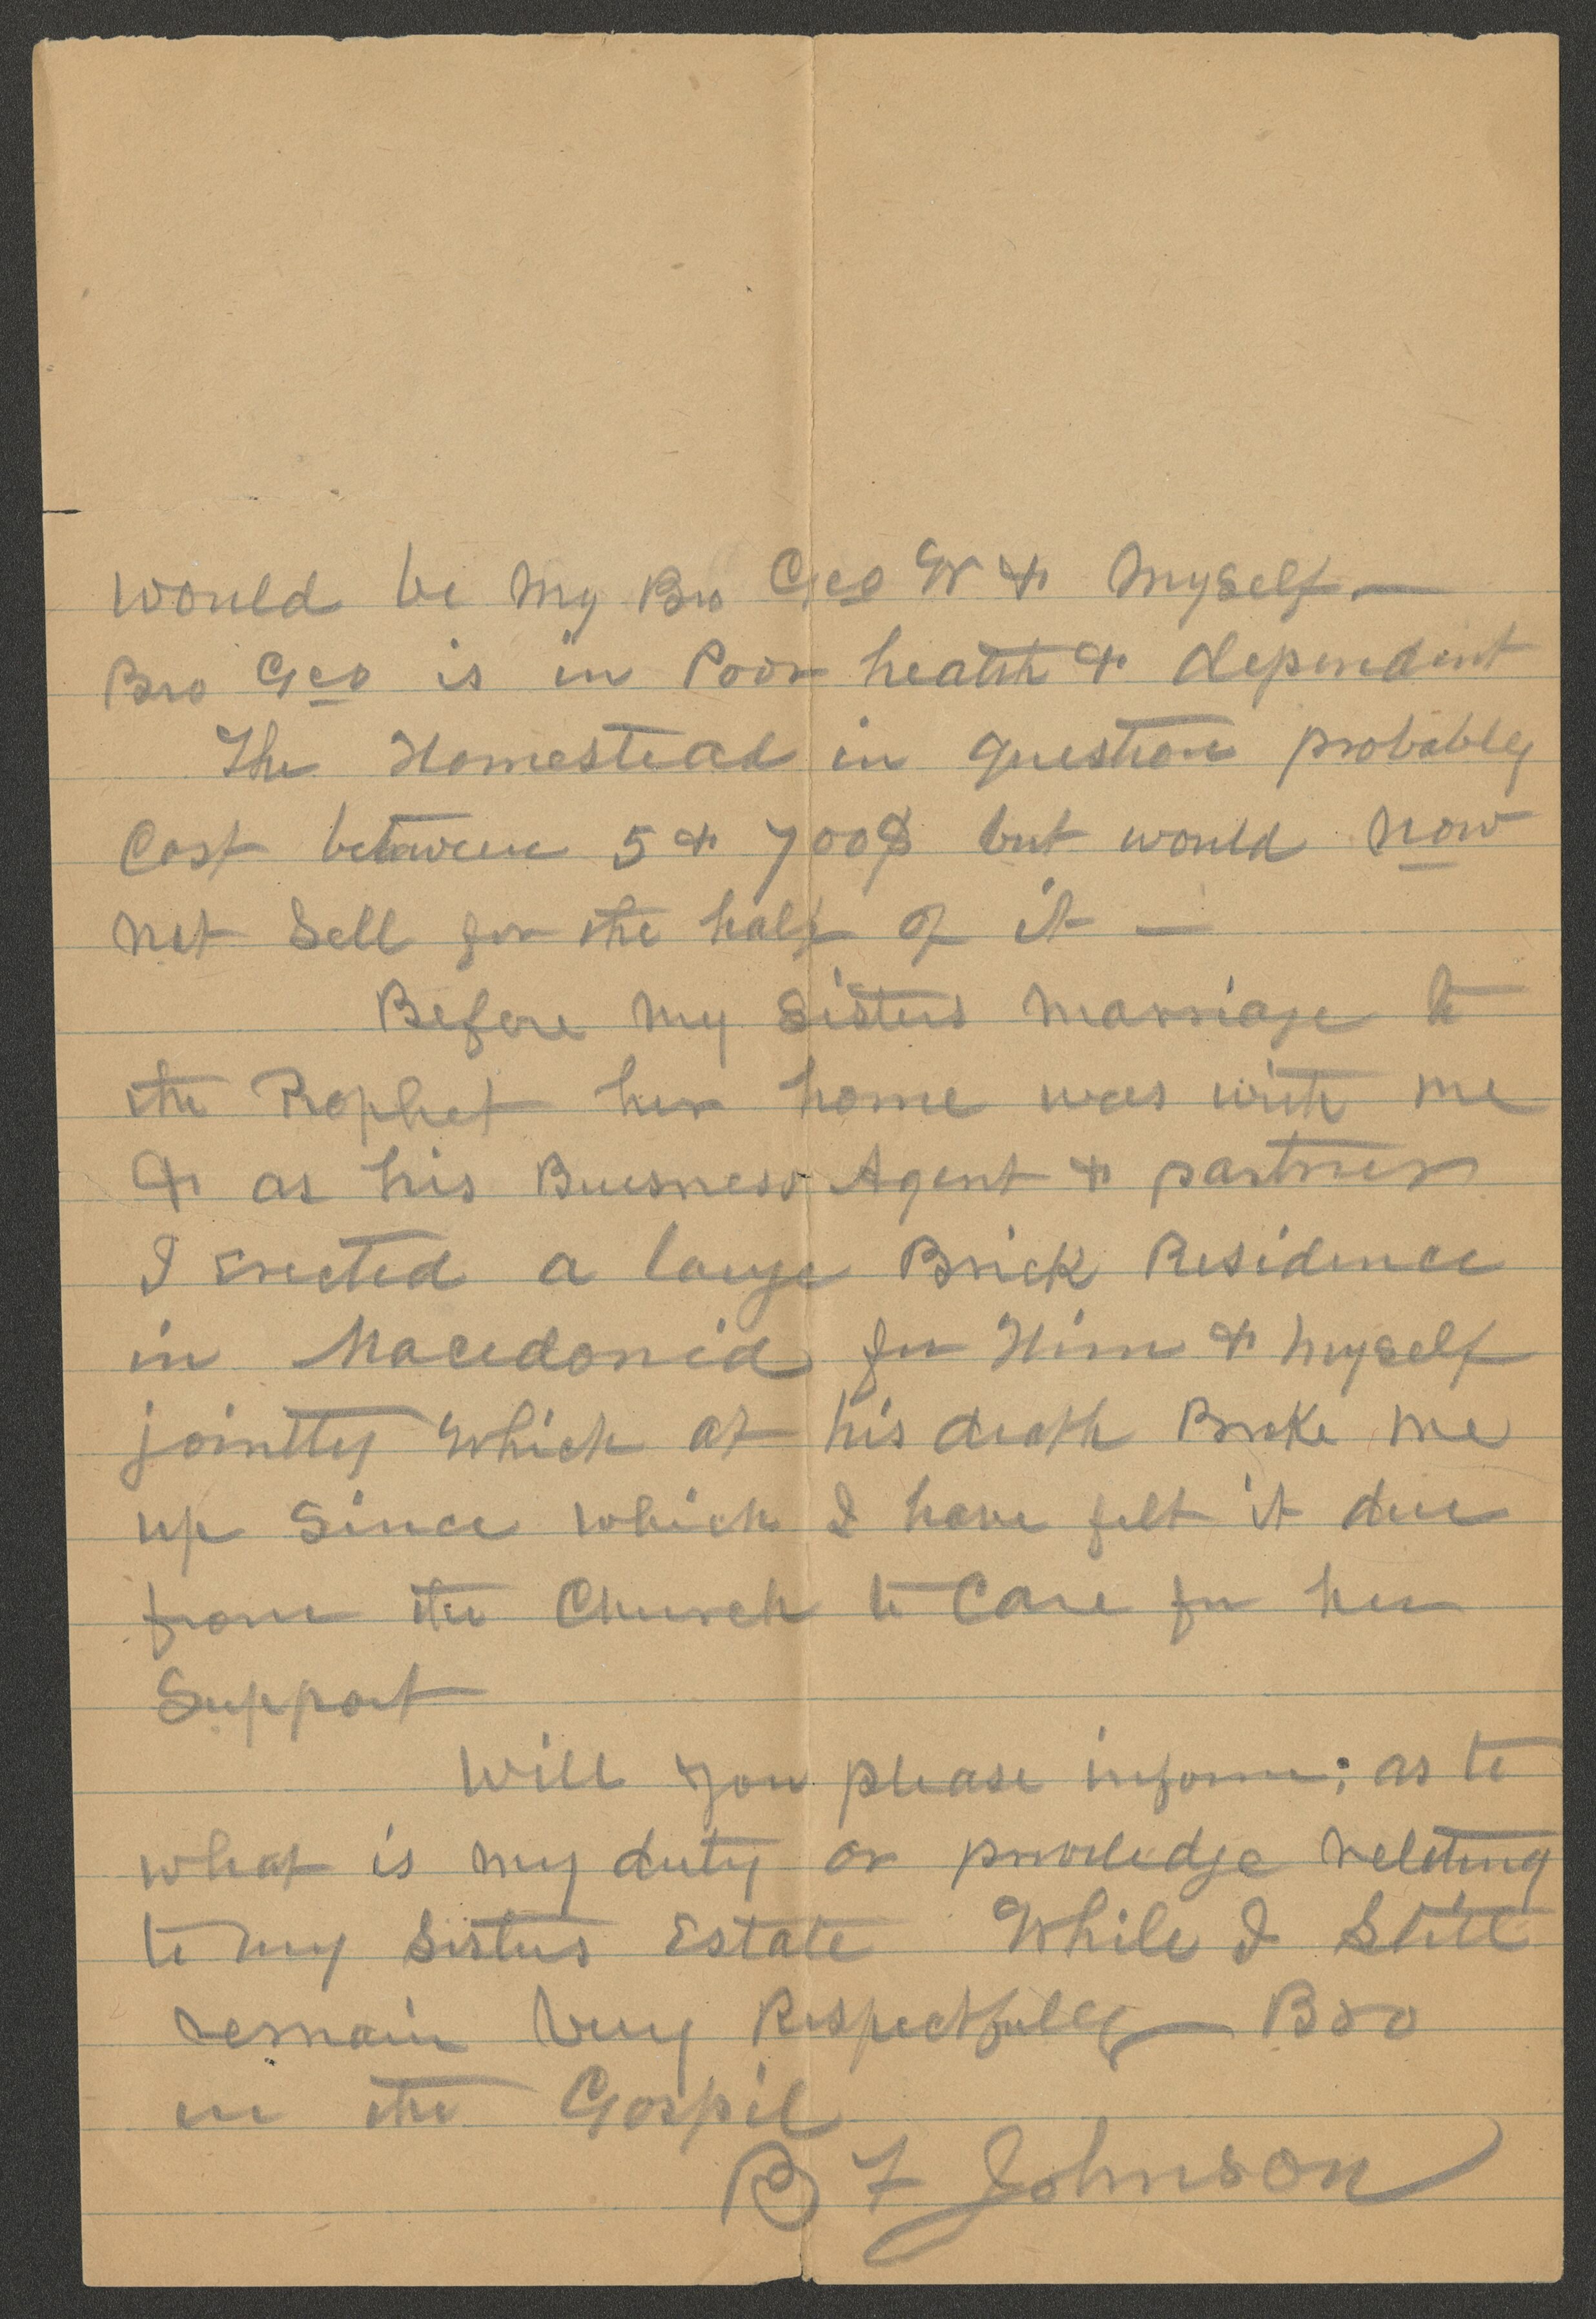 would be My Bro Geo W & Myself —
Bro Geo is in Poor health & dependent
The Homestead in question probably
Cost between 5 & 700$ but would now
not Sell for the half of it —
Before my Sisters Marriage to
the Prophet her home was with me
& as his Buesness Agent & partner
I erected a large Brick Residence
in Macedonia for Him & Myself
jointly Which at his death Broke me
up Since which I have felt it due
from the Church to Care for her
Support
Will you please inform; as to
what is my duty or priviledge relating
to my Sisters Estate While I Still
remain Very Respectfully — Bro
in the Gospel
B F Johnson